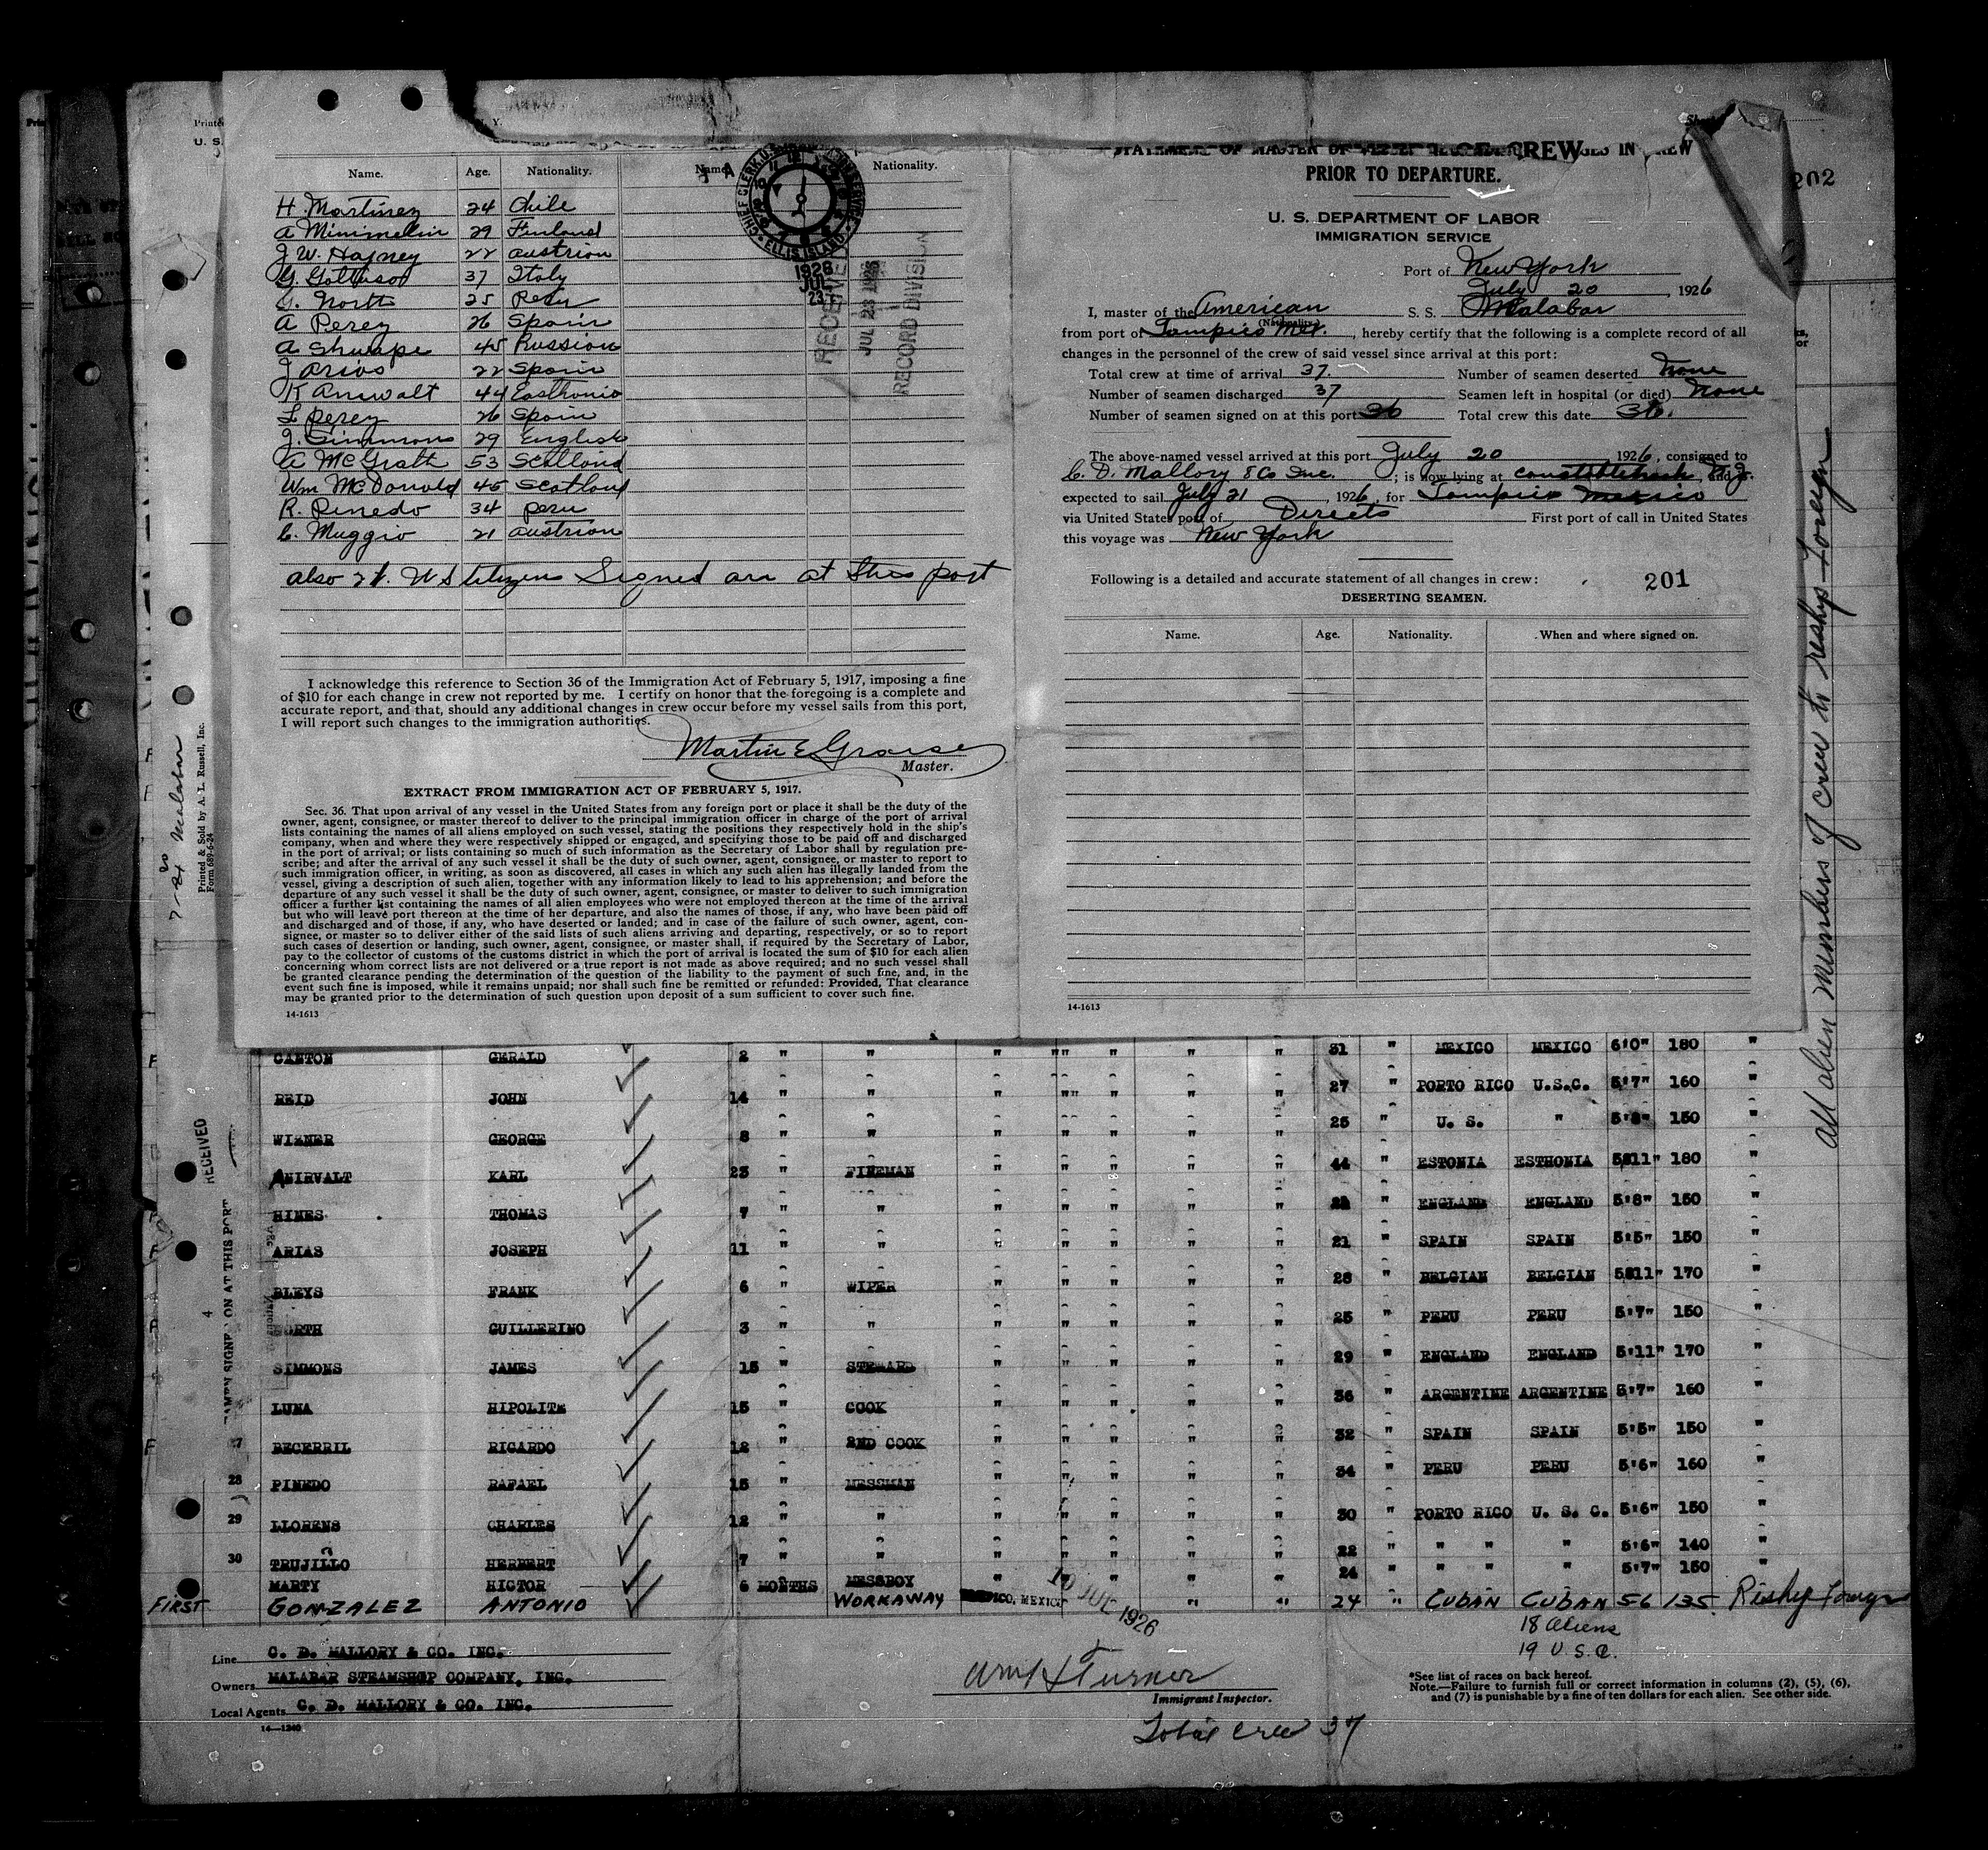 Name. Age. Nationality. Name. Nationality.
H. Martinez 24 Chile
A 29 Finland
J W. Hafney 22 Austrian
G. 37 Italy
G. North 25 Peru
A Perez 26 Spain
A Shwape 45 Russian
J Arios 22 Spain
K Anwalt 44 Easthonio
L Perez 26 Spain
J. Simmons 29 English
A McGrath 53 Scotland
Wm McDonald 45 Scotland
R. Pinedo 34 Peru
C. Muggio 21 Austrian
also 21. U S Citizens Signed on at this port
CHIEF CLERK, U.S. ELLIS ISLAND
1926
JUL
23
RECEIVED
JUL 23 1926
RECORD DIVISION
I acknowledge this reference to Section 36 of the Immigration Act of February 5, 1917, imposing a fine
of $10 for each change in crew not reported by me. I certify on honor that the foregoing is a complete and
accurate report, and that, should any additional changes in crew occur before my vessel sails from this port,
I will report such changes to the immigration authorities.
Martin E
Master.
EXTRACT FROM IMMIGRATION ACT OF FEBRUARY 5, 1917.
Sec. 36. That upon arrival of any vessel in the United States from any foreign port or place it shall be the duty of the
owner, agent, consignee, or master thereof to deliver to the principal immigration officer in charge of the port of arrival
lists containing the names of all aliens employed on such vessel, stating the positions they respectively hold in the ship's
company, when and where they were respectively shipped or engaged, and specifying those to be paid off and discharged
in the port of arrival; or lists containing so much of such information as the Secretary of Labor shall by regulation pre-
scribe; and after the arrival of any such vessel it shall be the duty of such owner, agent, consignee, or master to report to
such immigration officer, in writing, as soon as discovered, all cases in which any such alien has illegally landed from the
vessel, giving a description of such alien, together with any information likely to lead to his apprehension; and before the
departure of any such vessel it shall be the duty of such owner, agent, consignee, or master to deliver to such immigration
officer a further list containing the names of all alien employees who were not employed thereon at the time of the arrival
but who will leave port thereon at the time of her departure, and also the names of those, if any, who have been paid off
and discharged and of those, if any, who have deserted or landed; and in case of the failure of such owner, agent, con-
signee, or master so to deliver either of the said lists of such aliens arriving and departing, respectively, or so to report
such cases of desertion or landing, such owner, agent, consignee, or master shall, if required by the Secretary of Labor,
pay to the collector of customs of the customs district in which the port of arrival is located the sum of $10 for each alien
concerning whom correct lists are not delivered or a true report is not made as above required; and no such vessel shall
be granted clearance pending the determination of the question of the liability to the payment of such fine, and, in the
event such fine is imposed, while it remains unpaid; nor shall such fine be remitted or refunded: Provided, That clearance
may be granted prior to the determination of such question upon deposit of a sum sufficient to cover such fine.
14-1613
PRIOR TO DEPARTURE.
U. S. DEPARTMENT OF LABOR
IMMIGRATION SERVICE
Port of New York
July 20, 1926
I, master of the American S. S. Malabar
(Nationality.)
from port of Tampico Mex., hereby certify that the following is a complete record of all
changes in the personnel of the crew of said vessel since arrival at this port:
Total crew at time of arrival 37. Number of seamen deserted None
Number of seamen discharged 37 Seamen left in hospital (or died) None
Number of seamen signed on at this port 36 Total crew this date 36.
The above-named vessel arrived at this port July 20 1926, consigned to
C. D. Mallory & Co Inc.; is now lying at N.J., and is
expected to sail July 21, 1926, for Tampico Mexico
via United States port of Directo First port of call in United States
this voyage was New York
Following is a detailed and accurate statement of all changes in crew: 201
DESERTING SEAMEN.
Name. Age. Nationality. When and where signed on.
14-1613
202
All alien members of crew to reship Foreign
7-20 Malabar
Printed & Sold by A. L. Russell, Inc.
RECEIVED
ON AT THIS PORT
CANTON GERALD 2 " " " " " " " 31 " MEXICO MEXICO 6'0" 180 "
REID JOHN 14 " " " " " " " 27 " PORTO RICO U.S.C. 5'7" 160 "
WIENER GEORGE 8 " " " " " " " 25 " U. S. " 5'8" 150 "
ANIRVALT KARL 23 " FIREMAN " " " " " 44 " ESTONIA ESTHONIA 5'11" 180 "
HINES THOMAS 7 " " " " " " " " ENGLAND ENGLAND 5'8" 150 "
ARIAS JOSEPH 11 " " " " " " " 21 " SPAIN SPAIN 5'5" 150 "
BLEYS FRANK 6 " WIPER " " " " " 28 " BELGIAN BELGIAN 5'11" 170 "
NORTH GUILLERINO 3 " " " " " " " 25 " PERU PERU 5'7" 150 "
SIMMONS JAMES 15 " STEWARD " " " " " 29 " ENGLAND ENGLAND 5'11" 170 "
LUNA HIPOLITE 15 " COOK " " " " " 36 " ARGENTINE ARGENTINE 5'7" 160 "
BECERRIL RICARDO 12 " 2ND COOK " " " " " 32 " SPAIN SPAIN 5'5" 150 "
28 PINEDO RAFAEL 15 " MESSMAN " " " " " 34 " PERU PERU 5'6" 160 "
29 LLORENS CHARLES 12 " " " " " " " 30 " PORTO RICO U. S. C. 5'6" 150 "
30 TRUJILLO HERBERT 7 " " " " " " " 22 " " " " 5'6" 140 "
MARTY HICTOR 6 MONTHS MESSBOY " " " " " 24 " " " " 5'7" 150 "
FIRST GONZALEZ ANTONIO WORKAWAY MEXICO 10 JUL 1926 " " 24 " CUBAN CUBAN 56 135 Reship Foreign
18 Aliens
19 U. S. C.
Line C. D. MALLORY & CO. INC.
Owners MALABAR STEAMSHOP COMPANY, INC.
Local Agents C. D. MALLORY & CO. INC.
14-1240
Turner
Immigrant Inspector.
Total Crew 37
*See list of races on back hereof.
Note.—Failure to furnish full or correct information in columns (2), (5), (6),
and (7) is punishable by a fine of ten dollars for each alien. See other side.